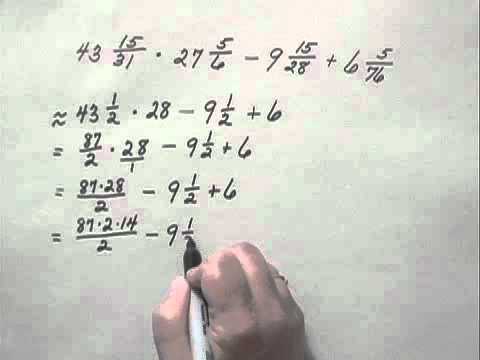 43 15/31 · 27 5/6 − 9 15/28 + 6 5/76
≈ 43 1/2 · 28 − 9 1/2 + 6
= 87/2 · 28/1 − 9 1/2 + 6
= 87·28/2 − 9 1/2 + 6
= 87·2·14/2 − 9 1/2